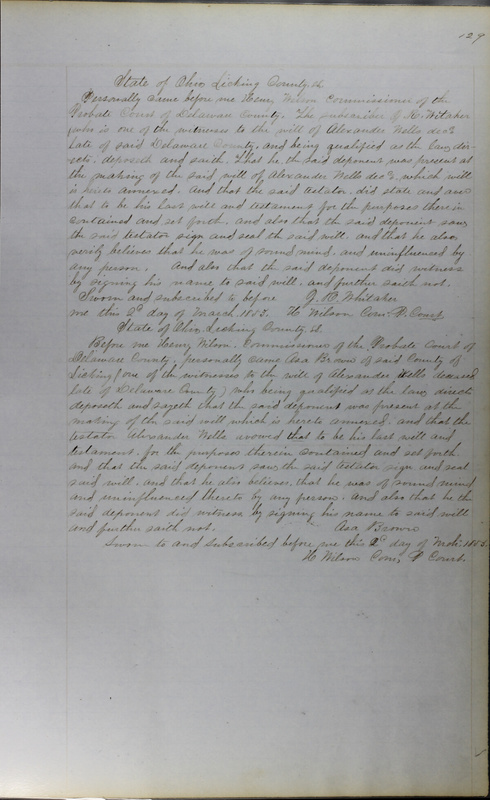 129
State of Ohio, Licking County, ss
Personally came before me Henry Wilson Commissioner of the
Probate Court of Delaware County. The subscriber H. Whitaker
who is one of the witnesses to the will of Alexander Wells decd
late of said Delaware County, and being qualified as the law dir-
ects, deposeth and saith. That he the said deponent was present at
the making of the said will of Alexander Wells decd. which will
is hereto annexed. And that the said testator did state and
that to be his last will and testament for the purposes therein
contained and set forth. and also that the said deponent saw
the said testator sign and seal the said will. and that he also
verily believes that he was of sound mind. and uninfluenced by
any person. And also that the said deponent did witness
by signing his name to said will. and further saith not.
Sworn and subscribed to before J. H. Whitaker
me this 2d day of March 1853. H. Wilson Com. P. Court
State of Ohio, Licking County ss
Before me Henry Wilson. Commissioner of the Probate Court of
Delaware County. personally came Asa Brown of said County of
Licking (one of the witnesses to the will of Alexander Wells deceased
late of Delaware County) who being qualified as the law directs
deposeth and sayeth that the said deponent was present at the
making of the said will which is hereto annexed. and that the
testator Alexander Wells avowed that to be his last will and
testament. for the purposes therein contained and set forth.
and that the said deponent saw the said testator sign and seal
said will. and that he also believes, that he was of sound mind
and uninfluenced thereto by any person. And also that he the
said deponent did witness by signing his name to said will
and further saith not. Asa Brown
Sworn to and subscribed before me this 2d day of Mch. 1853.
H. Wilson Com, P Court.